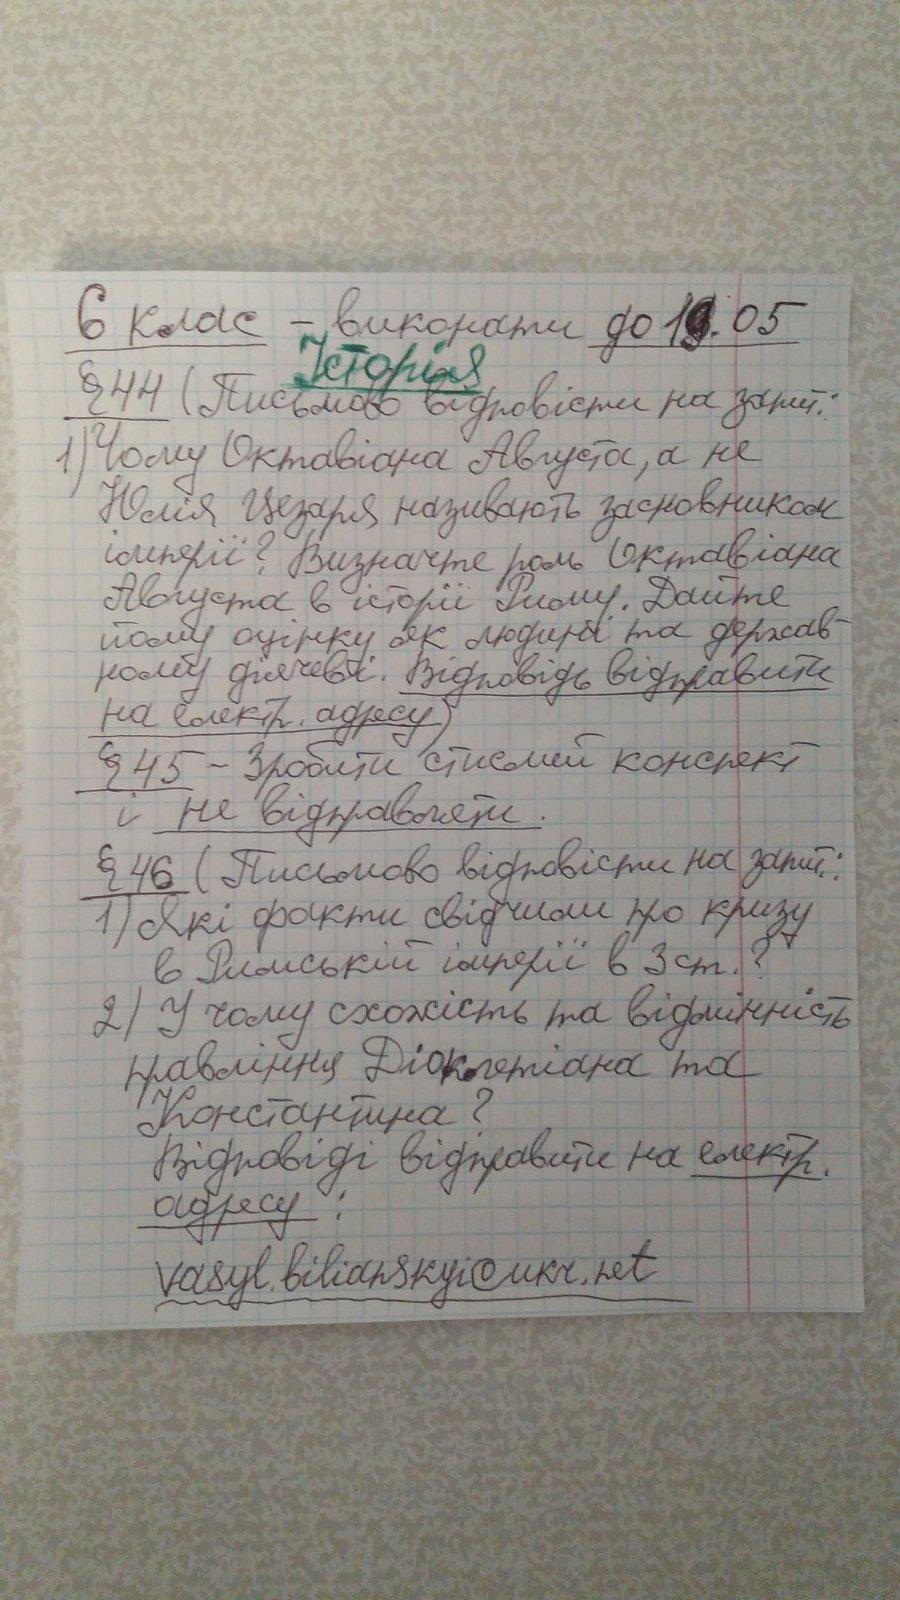 6 клас – виконати до 19.05
Історія
§44 (Письмово відповісти на запит.:
1) Чому Октавіана Августа, а не
Юлія Цезаря називають засновником
імперії? Визначте роль Октавіана
Августа в історії Риму. Дайте
йому оцінку як людині та держав-
ному діячеві. Відповідь відправити
на електр. адресу)
§45 – Зробити стислий конспект
і не відправляти.
§46 (Письмово відповісти на запит.:
1) Які факти свідчили про кризу
в Римській імперії в 3 ст.?
2) У чому схожість та відмінність
правління Діоклетіана та
Константина?
Відповіді відправити на електр.
адресу:
vasyl.bilianskyi@ukr.net